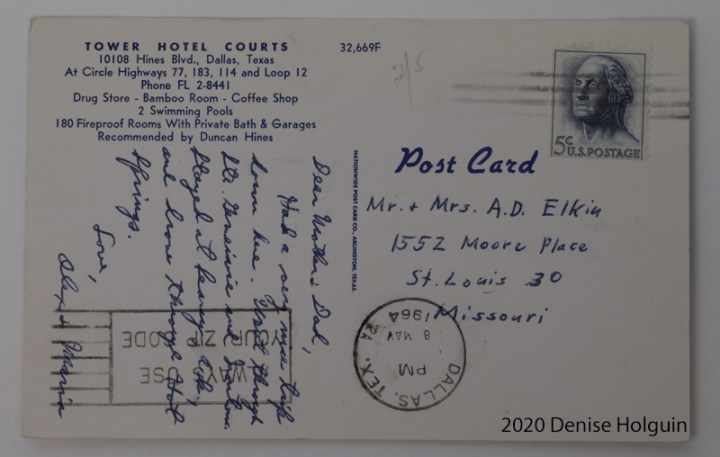 TOWER HOTEL COURTS
10108 Hines Blvd., Dallas, Texas
At Circle Highways 77, 183, 114 and Loop 12
Phone FL 2-8441
Drug Store - Bamboo Room - Coffee Shop
2 Swimming Pools
180 Fireproof Rooms With Private Bath & Garages
Recommended by Duncan Hines
32,669F
2/5
5c
U.S. POSTAGE
Dear Mother & Dad,
Had a very nice trip
down here. Went through
Ste. Genevieve and
Stayed at
and drove through Hot
Springs.
Love,
Maria
NATIONWIDE POST CARD CO., ARLINGTON, TEXAS
Post Card
Mr. + Mrs. A.D. Elkin
1552 Moore Place
St. Louis 30
Missouri
ALWAYS USE
YOUR ZIP CODE
DALLAS, TEX.
PM
8 MAY
1964
2020 Denise Holguin